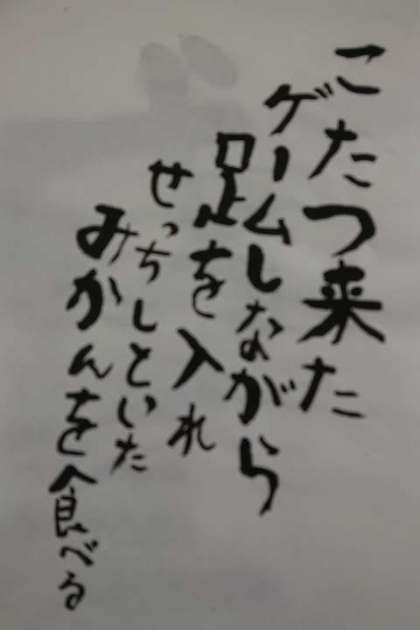 こたつ来た
ゲームしながら
足を入れ
せっちしといた
みかんを食べる